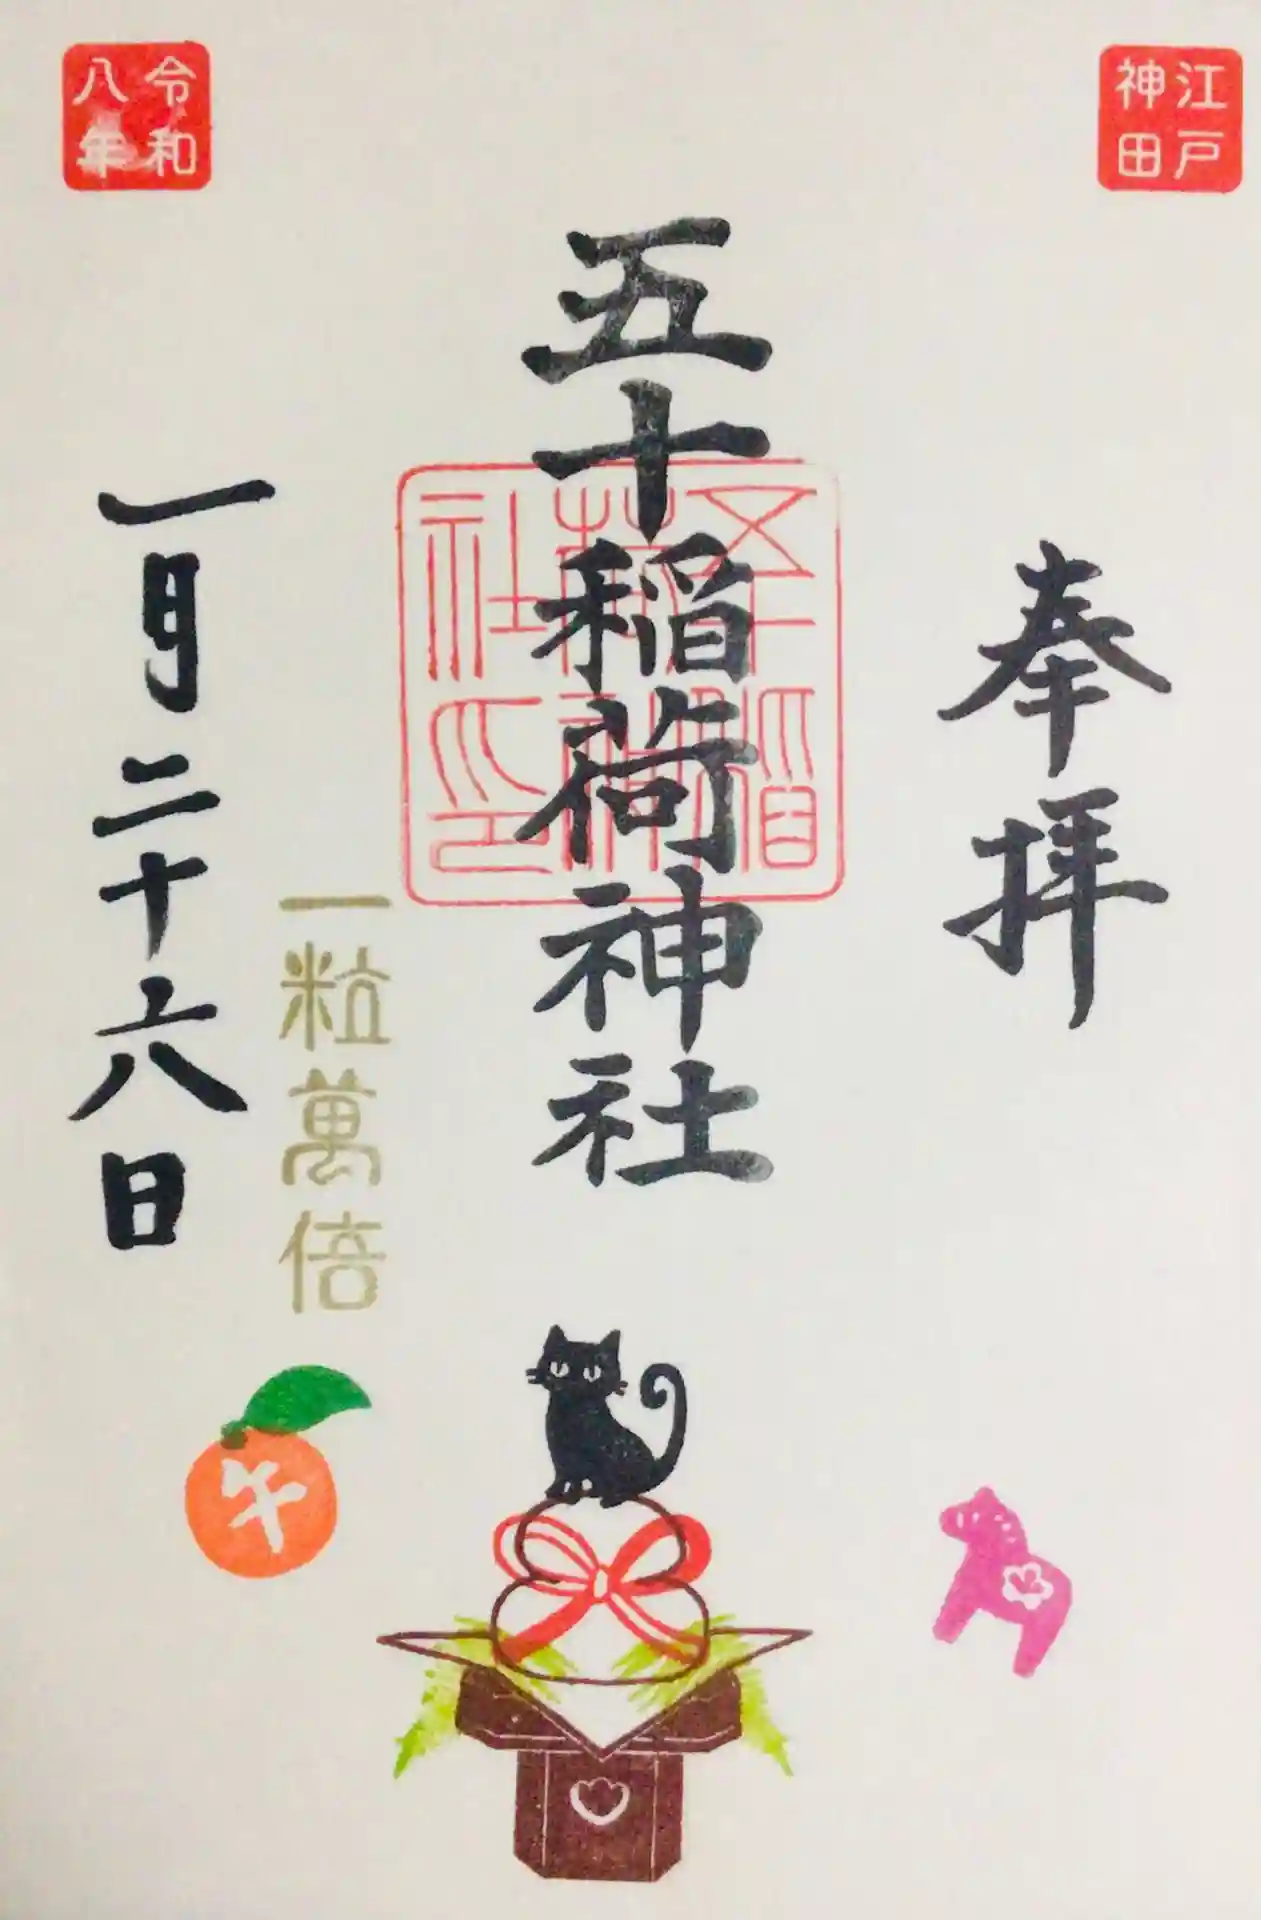 江戸
神田
奉拝
五十稲荷神社
五十稲
荷神
社印
一粒萬倍
令和
八年
一月二十六日
午